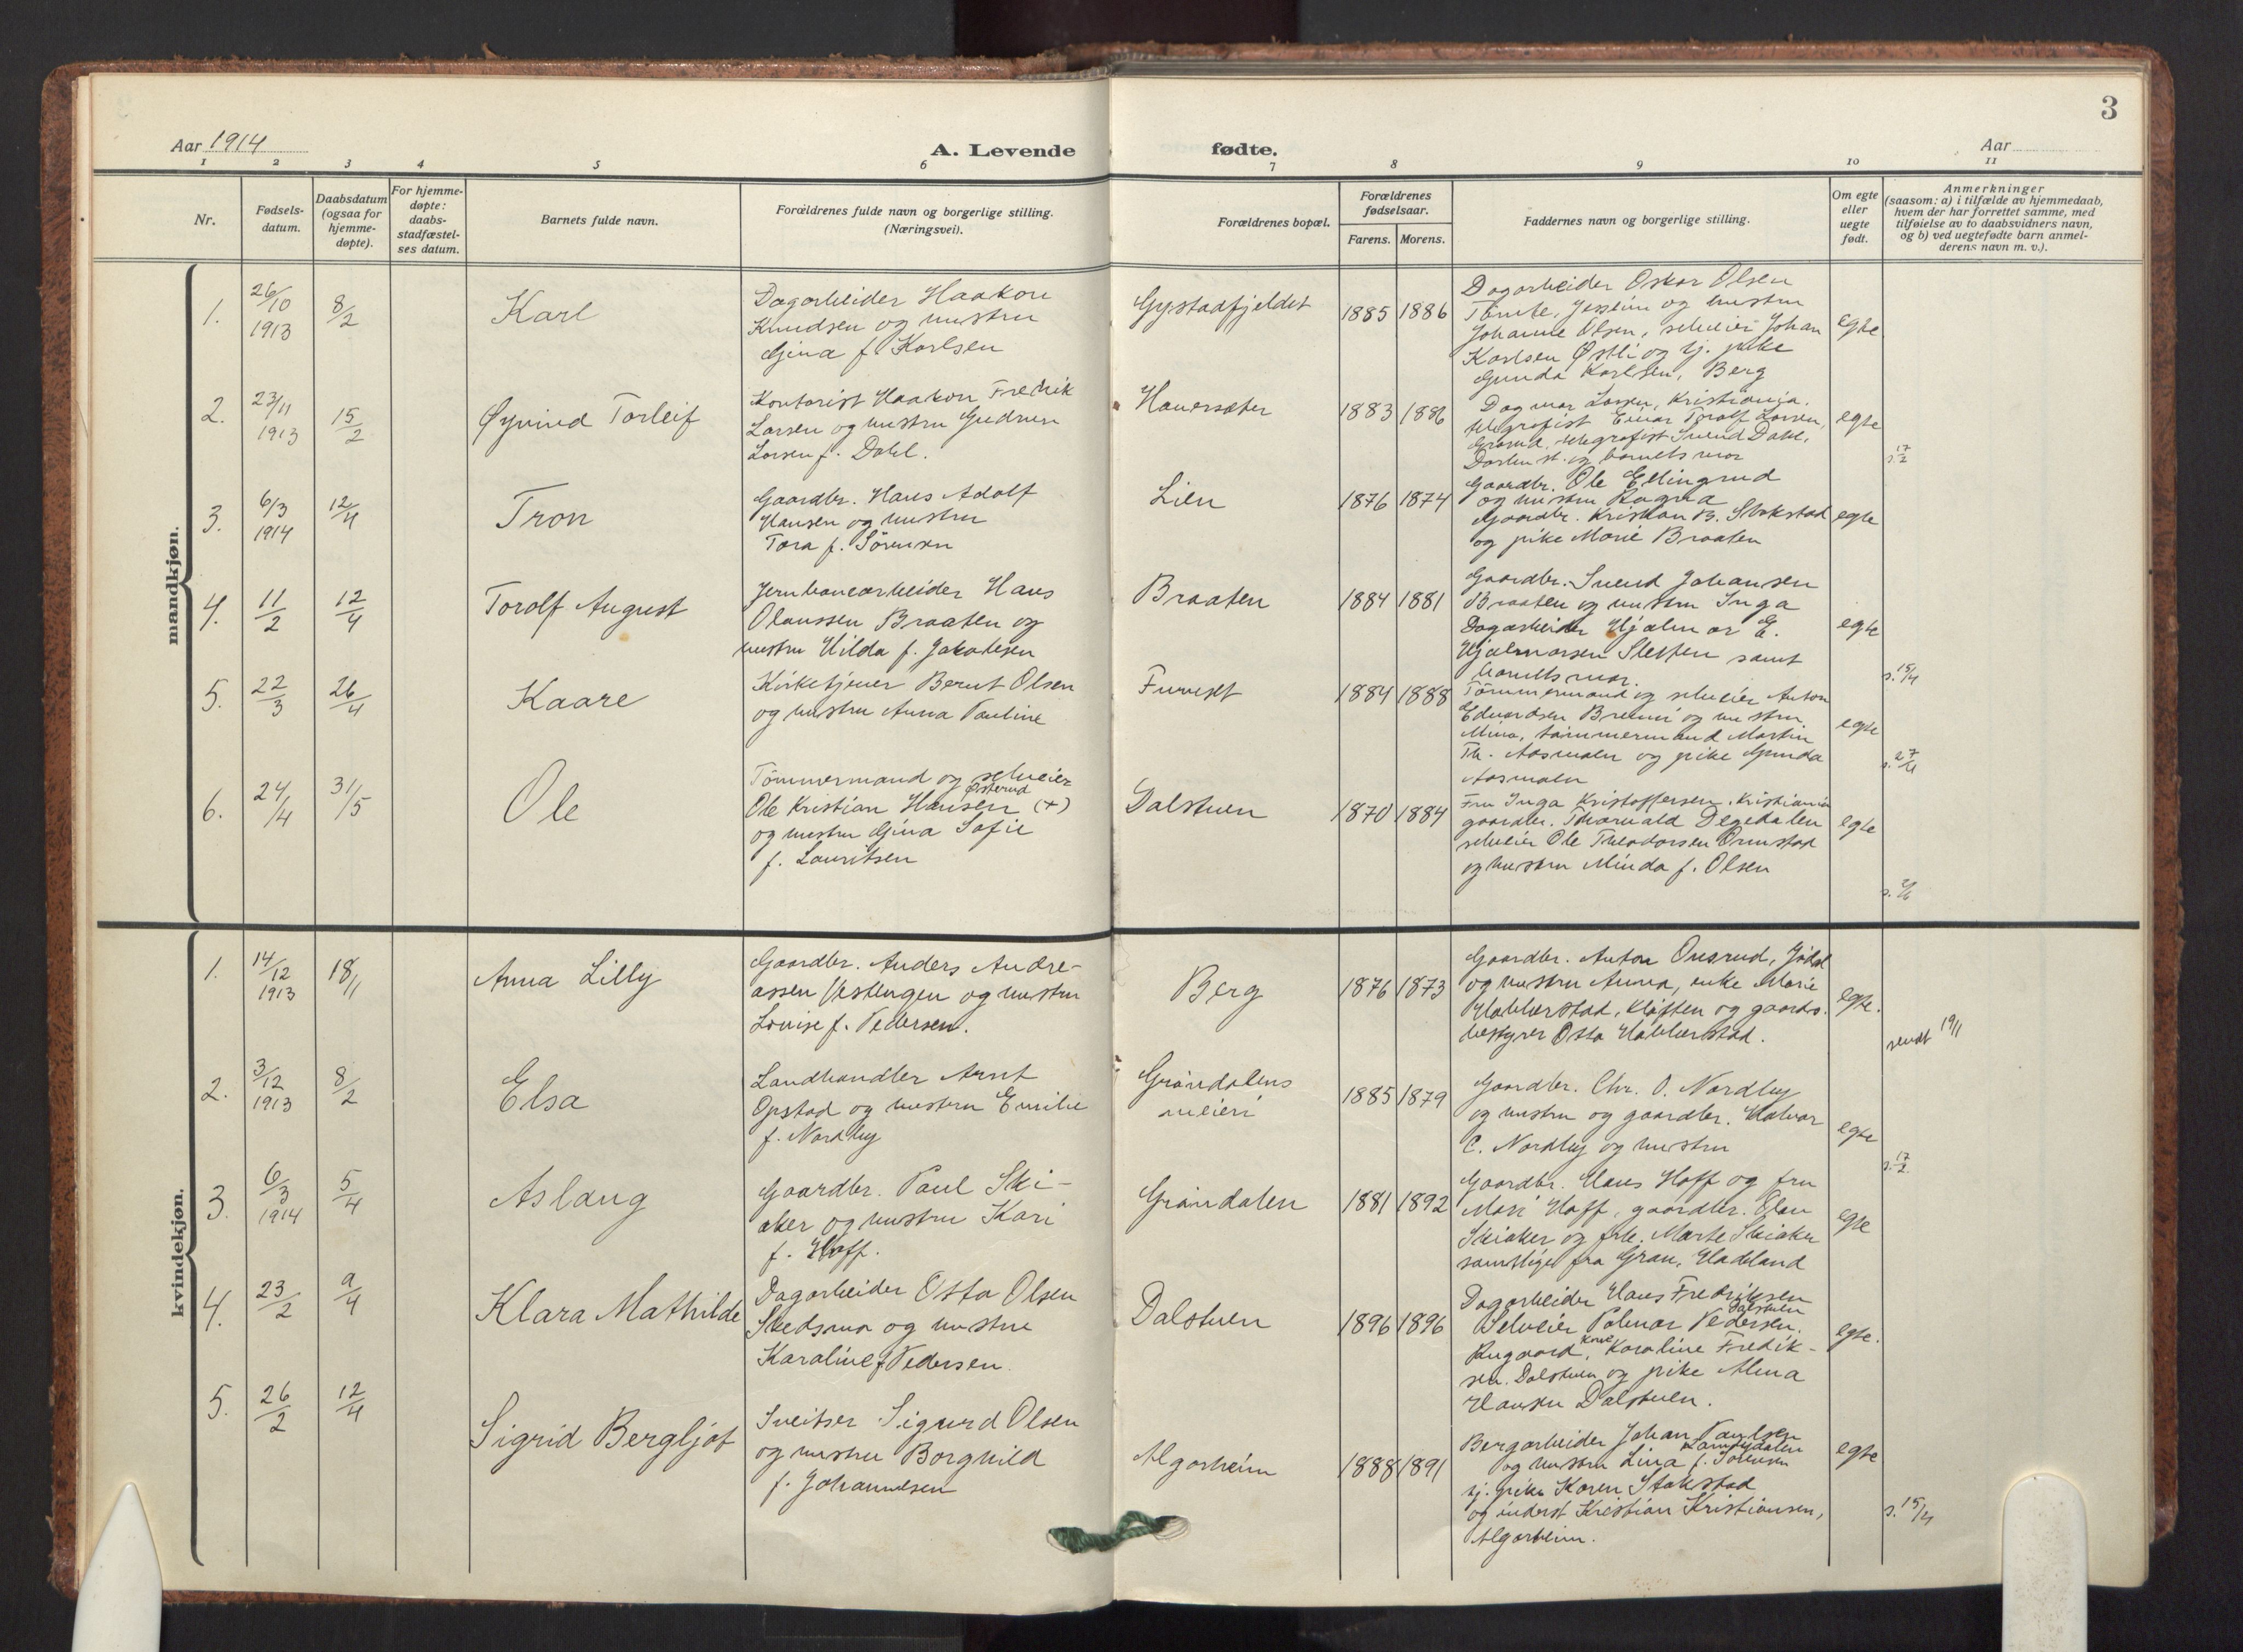 3
Aar 1914
A. Levende
fødte.
Aar
1 2 3 4 5 6 7 8 9 10 11
Nr.
Fødsels-
datum.
Daabsdatum
(ogsaa for
hjemme-
døpte).
For hjemme-
døpte:
daabs-
stadfæstel-
ses datum.
Barnets fulde navn.
Forældrenes fulde navn og borgerlige stilling.
(Næringsvei).
Forældrenes bopæl.
Forældrenes
fødselsaar.
Farens. Morens.
Faddernes navn og borgerlige stilling.
Om egte
eller
uegte
født.
Anmerkninger
(saasom: a) i tilfælde av hjemmedaab,
hvem der har forrettet samme, med
tilføielse av to daabsvidners navn,
og b) ved uegtefødte barn anmel-
derens navn m. v.).
mandkjøn.
1.
26/10
1913
8/2
Karl
Dagarbeider Haakon
Knudsen og hustru
Gina f. Karlsen
Gystadfjeldet
1885 1886
Dagarbeider Oskar Olsen
Jessheim og hustru
Johanne Olsen, selveier Johan
Karlsen Østli og tj. pike
Gunda Karlsen, Berg
egte
2.
23/11
1913
15/2
Øyvind Torleif
Kontorist Haakon Fredrik
Larsen og hustru Gudrun
Larsen f. Dahl.
Hauersæter
1883 1886
Dagmar Larsen, Kristiania.
telegrafist Einar Torolf Larsen,
telegrafist Svend Dahl,
og barnets mor
egte
s. 17/2
3.
6/3
1914
12/4
Tron
Gaardbr. Hans Adolf
Hansen og hustru
Tora f. Sörensen
Lien
1876 1874
Gaardbr. Ole Ellingrud
og hustru Ragna
Gaardbr. Kristian B. Stokstad
og pike Marie Braaten
egte
4.
11/2
12/4
Torolf August
Jernbanearbeider Hans
Olaussen Braaten og
hustru Hilda f. Jakobsen
Braaten
1884 1881
Gaardbr. Svend Johansen
Braaten og hustru Inga
Dagarbeider Hjalmar E.
Hjalmarsen Sletten samt
barnets mor.
egte
s. 15/4
5.
22/3
26/4
Kaare
Kirketjener Bernt Olsen
og hustru Anna Pauline
Furuset
1884 1888
Tömmermand og selveier Anton
Edvardsen og hustru
Mina, tömmermand Martin
Th. Aasmalen og pike Gunda
Aasmalen
egte
s. 27/4
6.
24/4
31/5
Ole
Tömmermand og selveier
Østerud
Ole Kristian Hansen (+)
og hustru Gina Sofie
f. Lauritsen
Dalstuen
1870 1884
Fru Inga Kristoffersen, Kristiania
gaardbr. Thorvald Degedalen
selveier Ole Theodorsen Ormstad
og hustru Minda f. Olsen
egte
s. 2/6
kvindekjøn.
1.
14/12
1913
18/1
Anna Lilly
Gaardbr. Anders Andre-
assen Vestengen og hustru
Louise f. Pedersen.
Berg
1876 1873
Gaardbr. Anton Onsrud,
og hustru Anna, enke Marie
Habberstad, Kløften og gaards.
bestyrer Otto Habberstad.
egte.
sendt 19/1
2.
3/12
1913
8/2
Elsa
Landhandler Arnt
Opstad og hustru Emilie
f. Nordby
Gröndalens
meieri
1885 1879
Gaardbr. Chr. O. Nordby
og hustru og gaardbr. Halvor
C. Nordby og hustru
egte
s. 17/2
3.
6/3
1914
5/4
Aslaug
Gaardbr. Paul Ski-
aker og hustru Kari
f. Hoff.
Gröndalen
1881 1892
Gaardbr. Hans Hoff og fru
Mari Hoff, gaardbr. Elen
Skiaker og frk. Marte Skiaker
samtlige fra Gran, Hadeland
egte
4.
23/2
9/4
Klara Mathilde
Dagarbeider Otto Olsen
Skedsmo og hustru
Karoline f. Pedersen.
Dalstuen
1896 1896
Dagarbeider Hans Fredriksen
Dalstuen
Selveier Palmar Pedersen.
kone
Rugaard, Karoline Fredik-
sen. Dalstuen og pike Alma
Hansen Dalstuen.
egte.
5.
26/2
12/4
Sigrid Bergljot
Sveitser Sigurd Olsen
og hustru Borghild
f. Johannesen
Algarheim
1888 1891
Bergarbeider Johan Paulsen
og hustru Lina f. Sörensen
tj. pike Karen Stokstad
og inderst Kristian Kristiansen,
Algarheim.
egte
s. 15/4